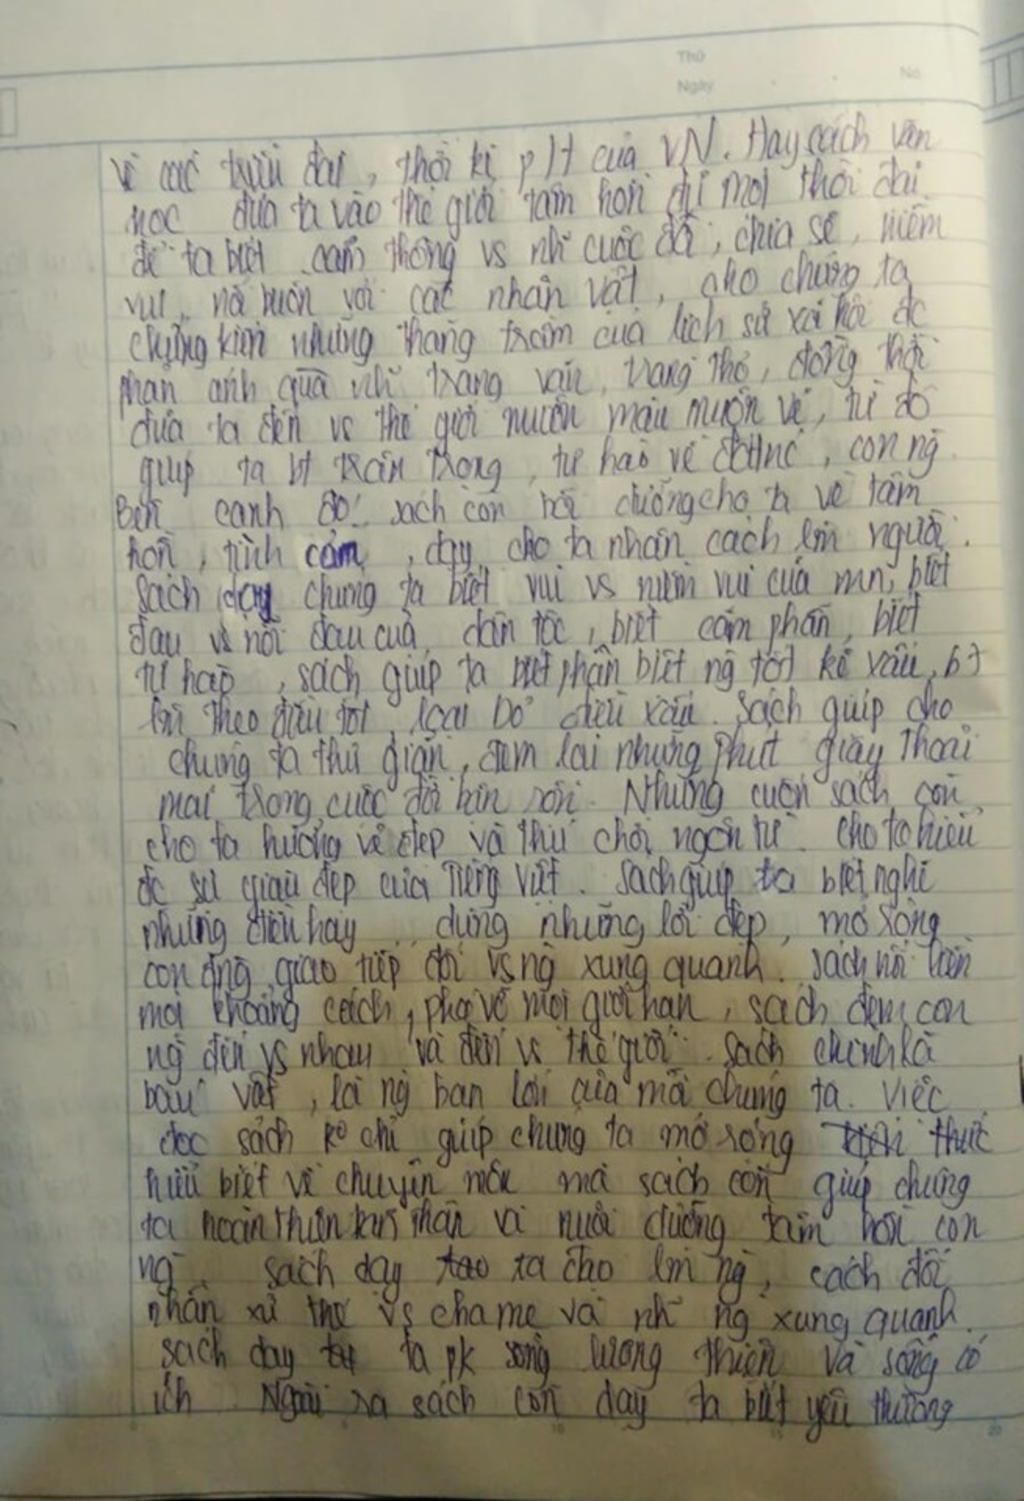 Thứ
Ngày
No
về các triều đại, thời kì pht của VN. Hay sách văn
học đưa ta vào thế giới tâm hồn đi mọi thời đại
để ta biết cảm thông vs nh~ cuộc đời, chia sẻ, niềm
vui, nỗi buồn với các nhân vật, cho chúng ta
chứng kiến những thăng trầm của lịch sử xã hội đc
phản ánh qua nh~ trang văn, trang thơ, đồng thời
đưa ta đến vs thế giới muôn màu muôn vẻ, từ đó
giúp ta bt trân trọng, tự hào về đất nc, con ng
Bên cạnh đó sách còn bồi dưỡng cho ta về tâm
hồn, tình cảm, dạy cho ta nhân cách lm người.
Sách dạy chúng ta biết vui vs niềm vui của mn, biết
đau vs nỗi đau của dân tộc, biết căm phẫn, biết
tự hào, sách giúp ta biết phân biệt ng tốt kẻ xấu, bt
lm theo điều tốt, loại bỏ điều xấu. Sách giúp cho
chúng ta thư giãn, đem lại những phút giây thoải
mái trong cuộc đời bận rộn. Những cuốn sách còn
cho ta hướng về đẹp và thú chơi ngôn từ. cho ta hiểu
đc sự giàu đẹp của Tiếng Việt. Sách giúp ta biết nghĩ
những điều hay, dùng những lời đẹp, mở rộng
con đng giao tiếp đối vs ng xung quanh. sách nối liền
mọi khoảng cách, phá vỡ mọi giới hạn, sách đem con
ng đến vs nhau và đến vs thế giới. Sách chính là
báu vật, là ng bạn lớn của mỗi chúng ta. Việc
đọc sách ko chỉ giúp chúng ta mở rộng thức
hiểu biết về chuyên môn mà sách còn giúp chúng
ta hoàn thiện bản thân và nuôi dưỡng tâm hồn con
ng. sách dạy ta cho lm ng, cách đối
nhân xử thế vs cha mẹ và nh~ ng xung quanh.
sách dạy ta pk sống lương thiện và sống có
ích. Ngoài ra sách còn dạy ta biết yêu thương